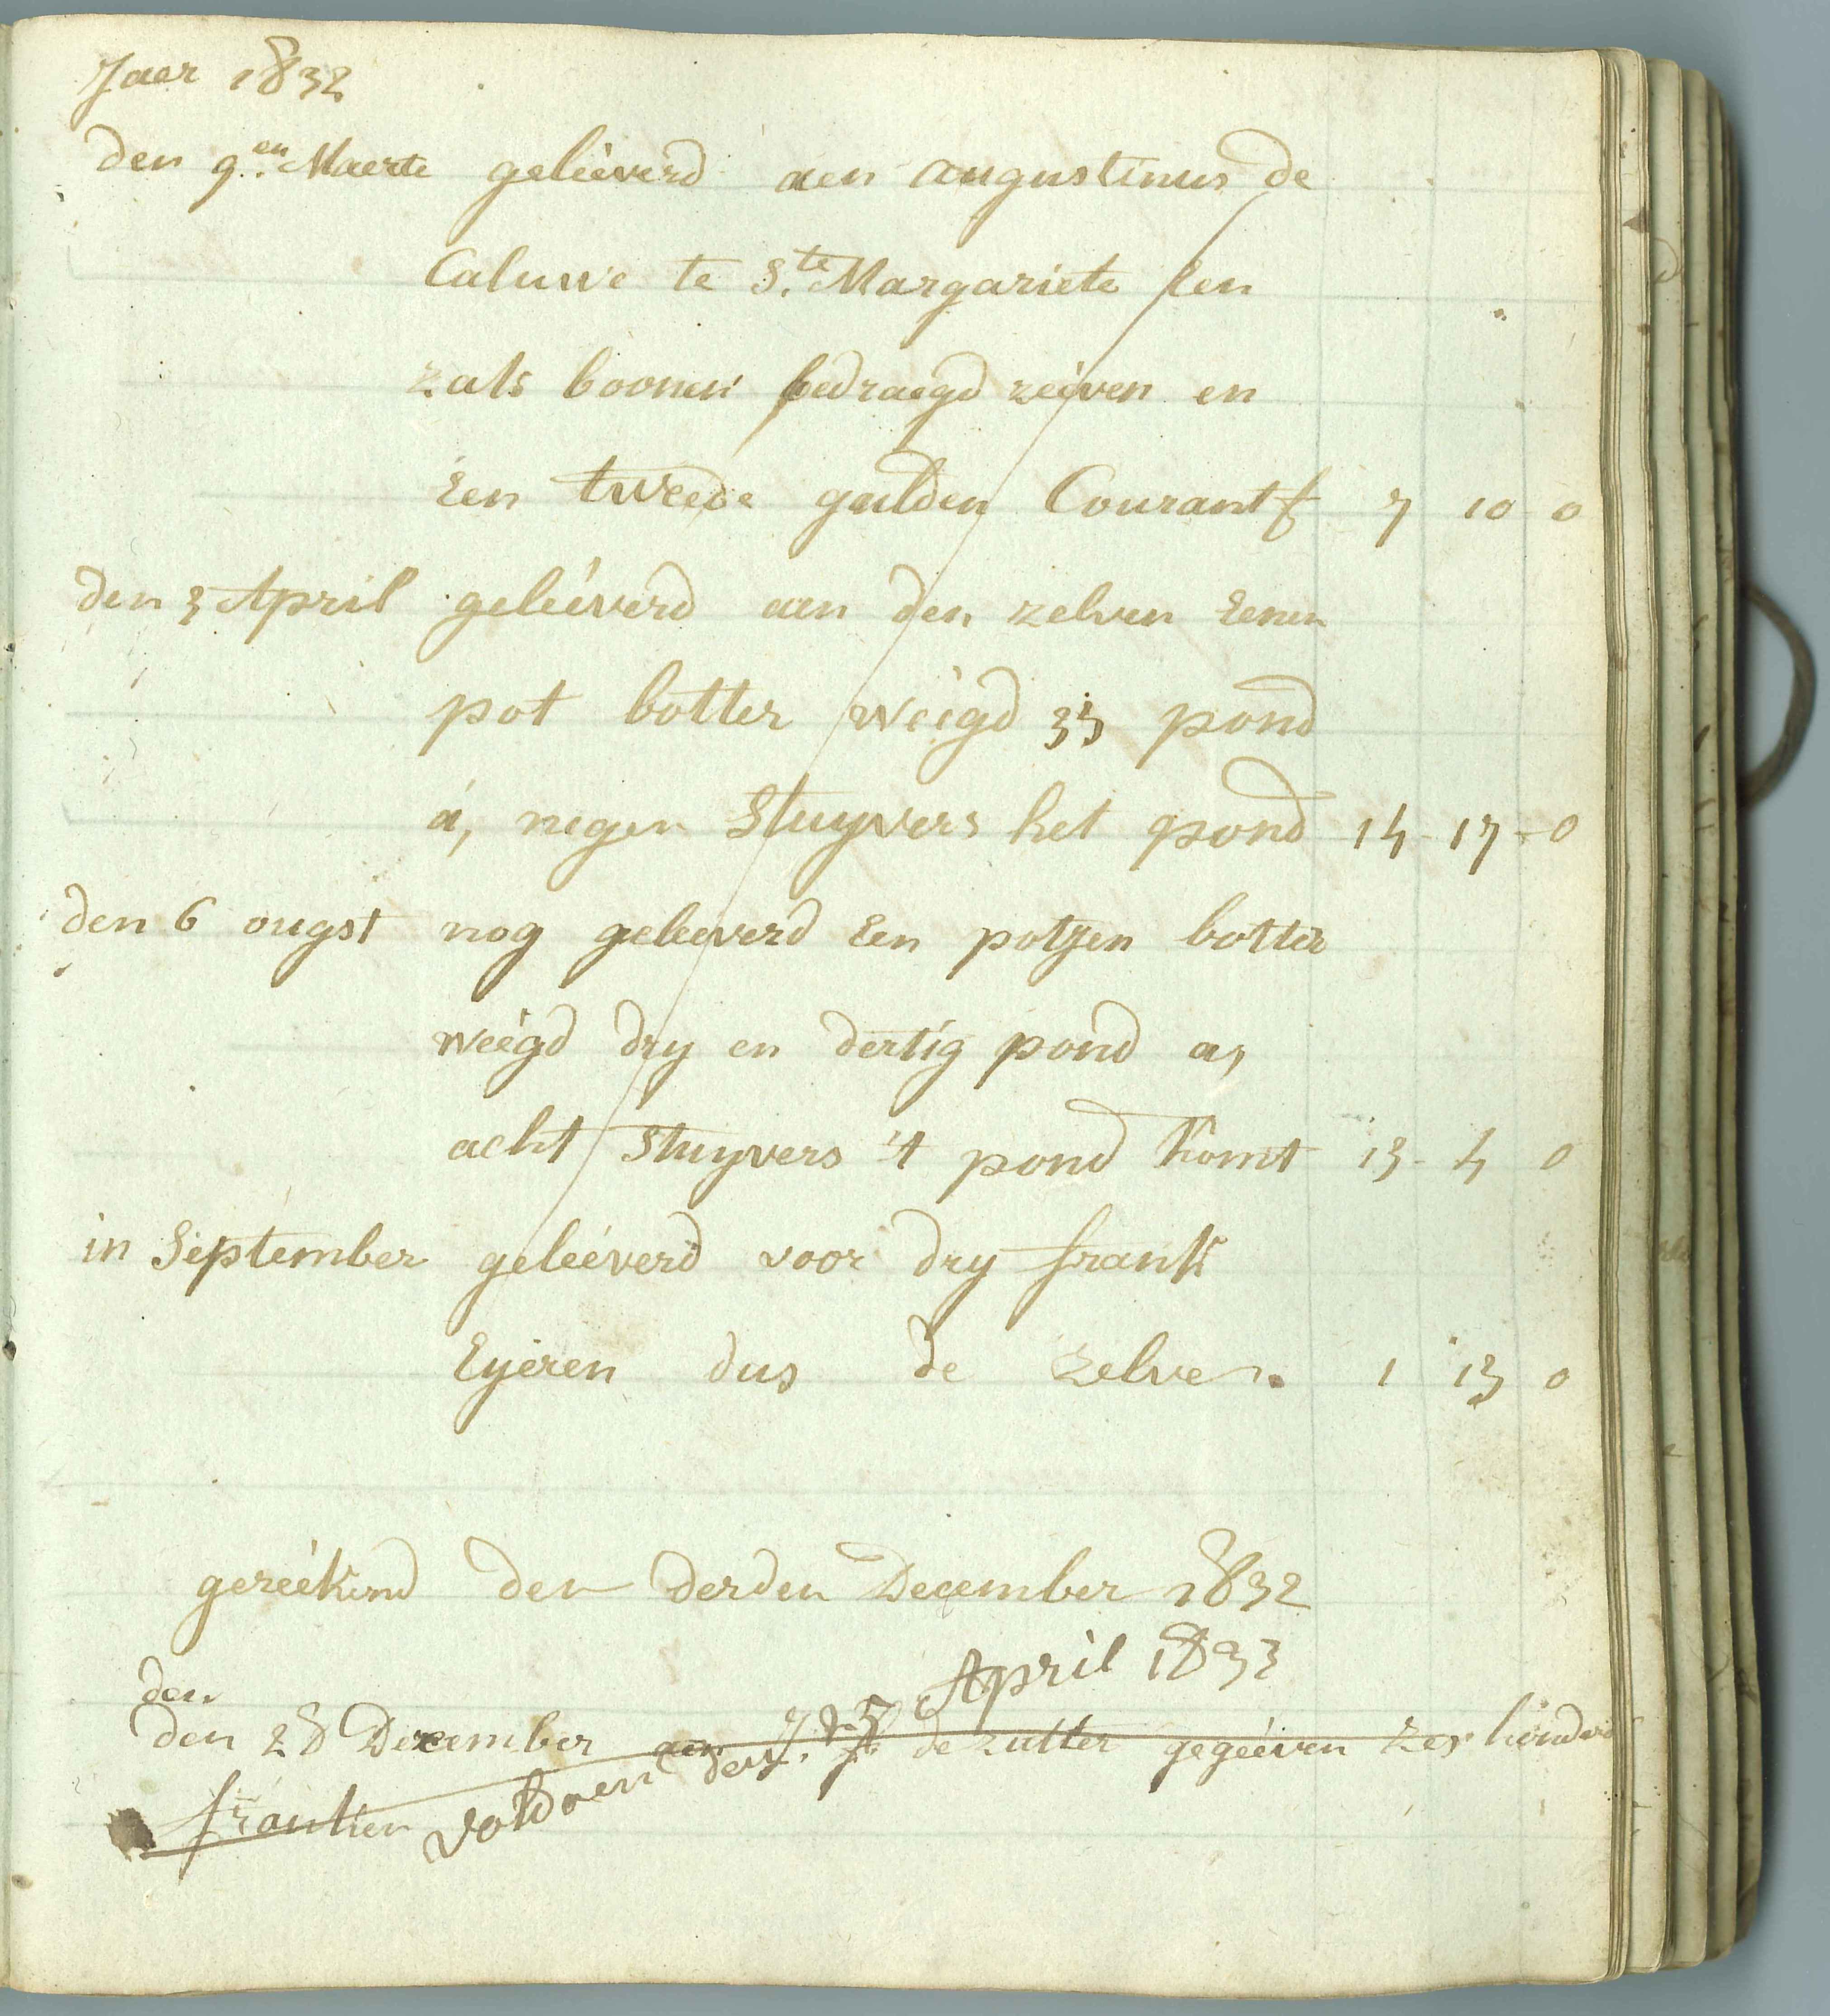 Jaer 1832
den 9en. Maerte geléeverd aen augustinus de
Caluwe te S.te Margariete Een
zals boonen bedraegd zeéven en
Een tweede gulden Courant f 7 10 0
den 3 April geléeverd aen den zelven Eenen
pot botter weégd 33 pond
á, negen Stuyvers het pond 14 - 17 - 0
den 6 ougst nog geleeverd Een potjen botter
weégd dry en dertig pond a,
acht Stuyvers 't pond komt 13 - 4 0
in September geléeverd voor dry frank
Eyeren dus de zelve 1 13 0
gereékend den derden December 1832
April 1833
den
den 28 December aen de zutter gegéeven zes honderd
franken voldoen den